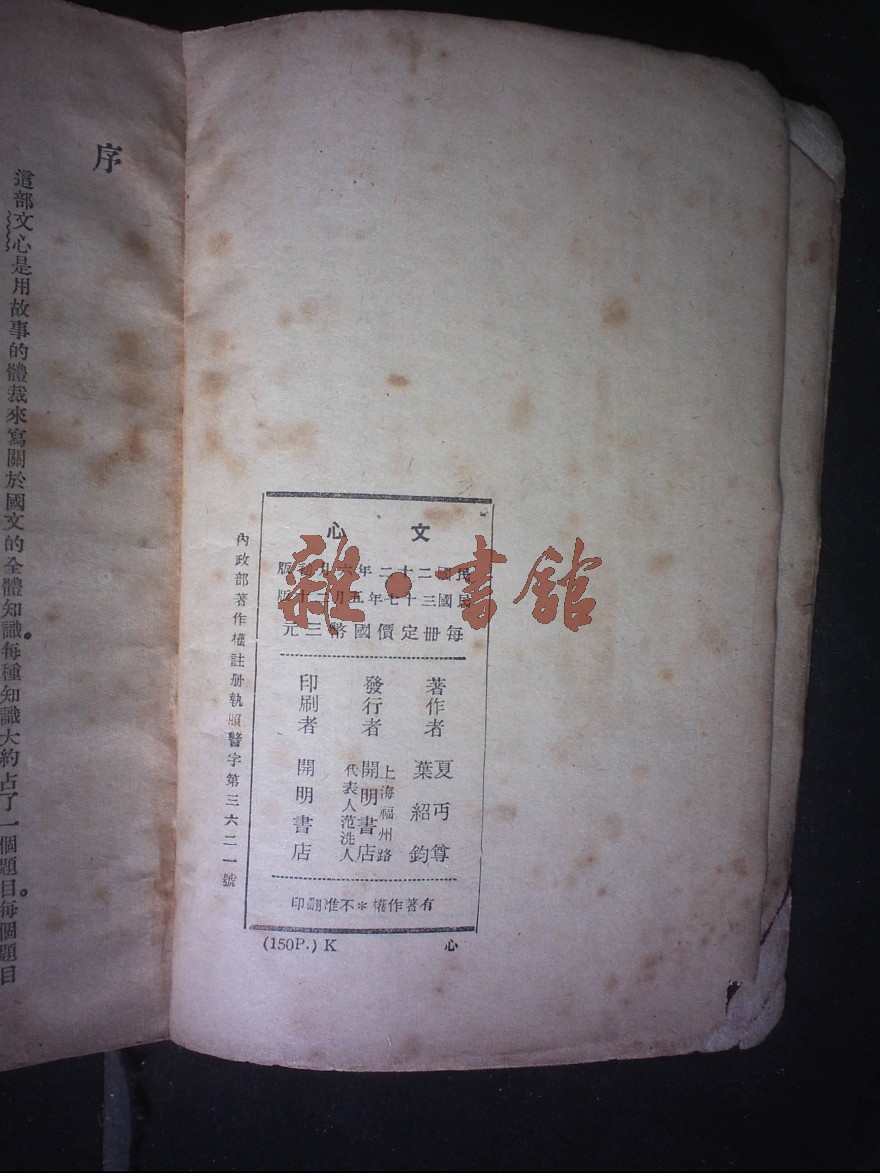 文心
民國二十二年六月初版
民國三十七年五月
每册定價國幣三元
著作者
夏丏尊
葉紹鈞
發行者
上海福州路
開明書店
代表人范洗人
印刷者
開明書店
有著作權＊不准翻印
內政部著作權註册執照警字第三六二一號
(150P.) K
心
序
這部文心是用故事的體裁來寫關於國文的全體知識。每種知識大約占了一個題目。每個題目
雜·書館